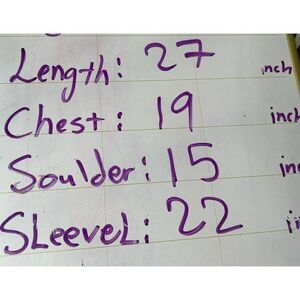 Length: 27 inch
Chest: 19 inch
Soulder: 15 in
SLeeveL: 22